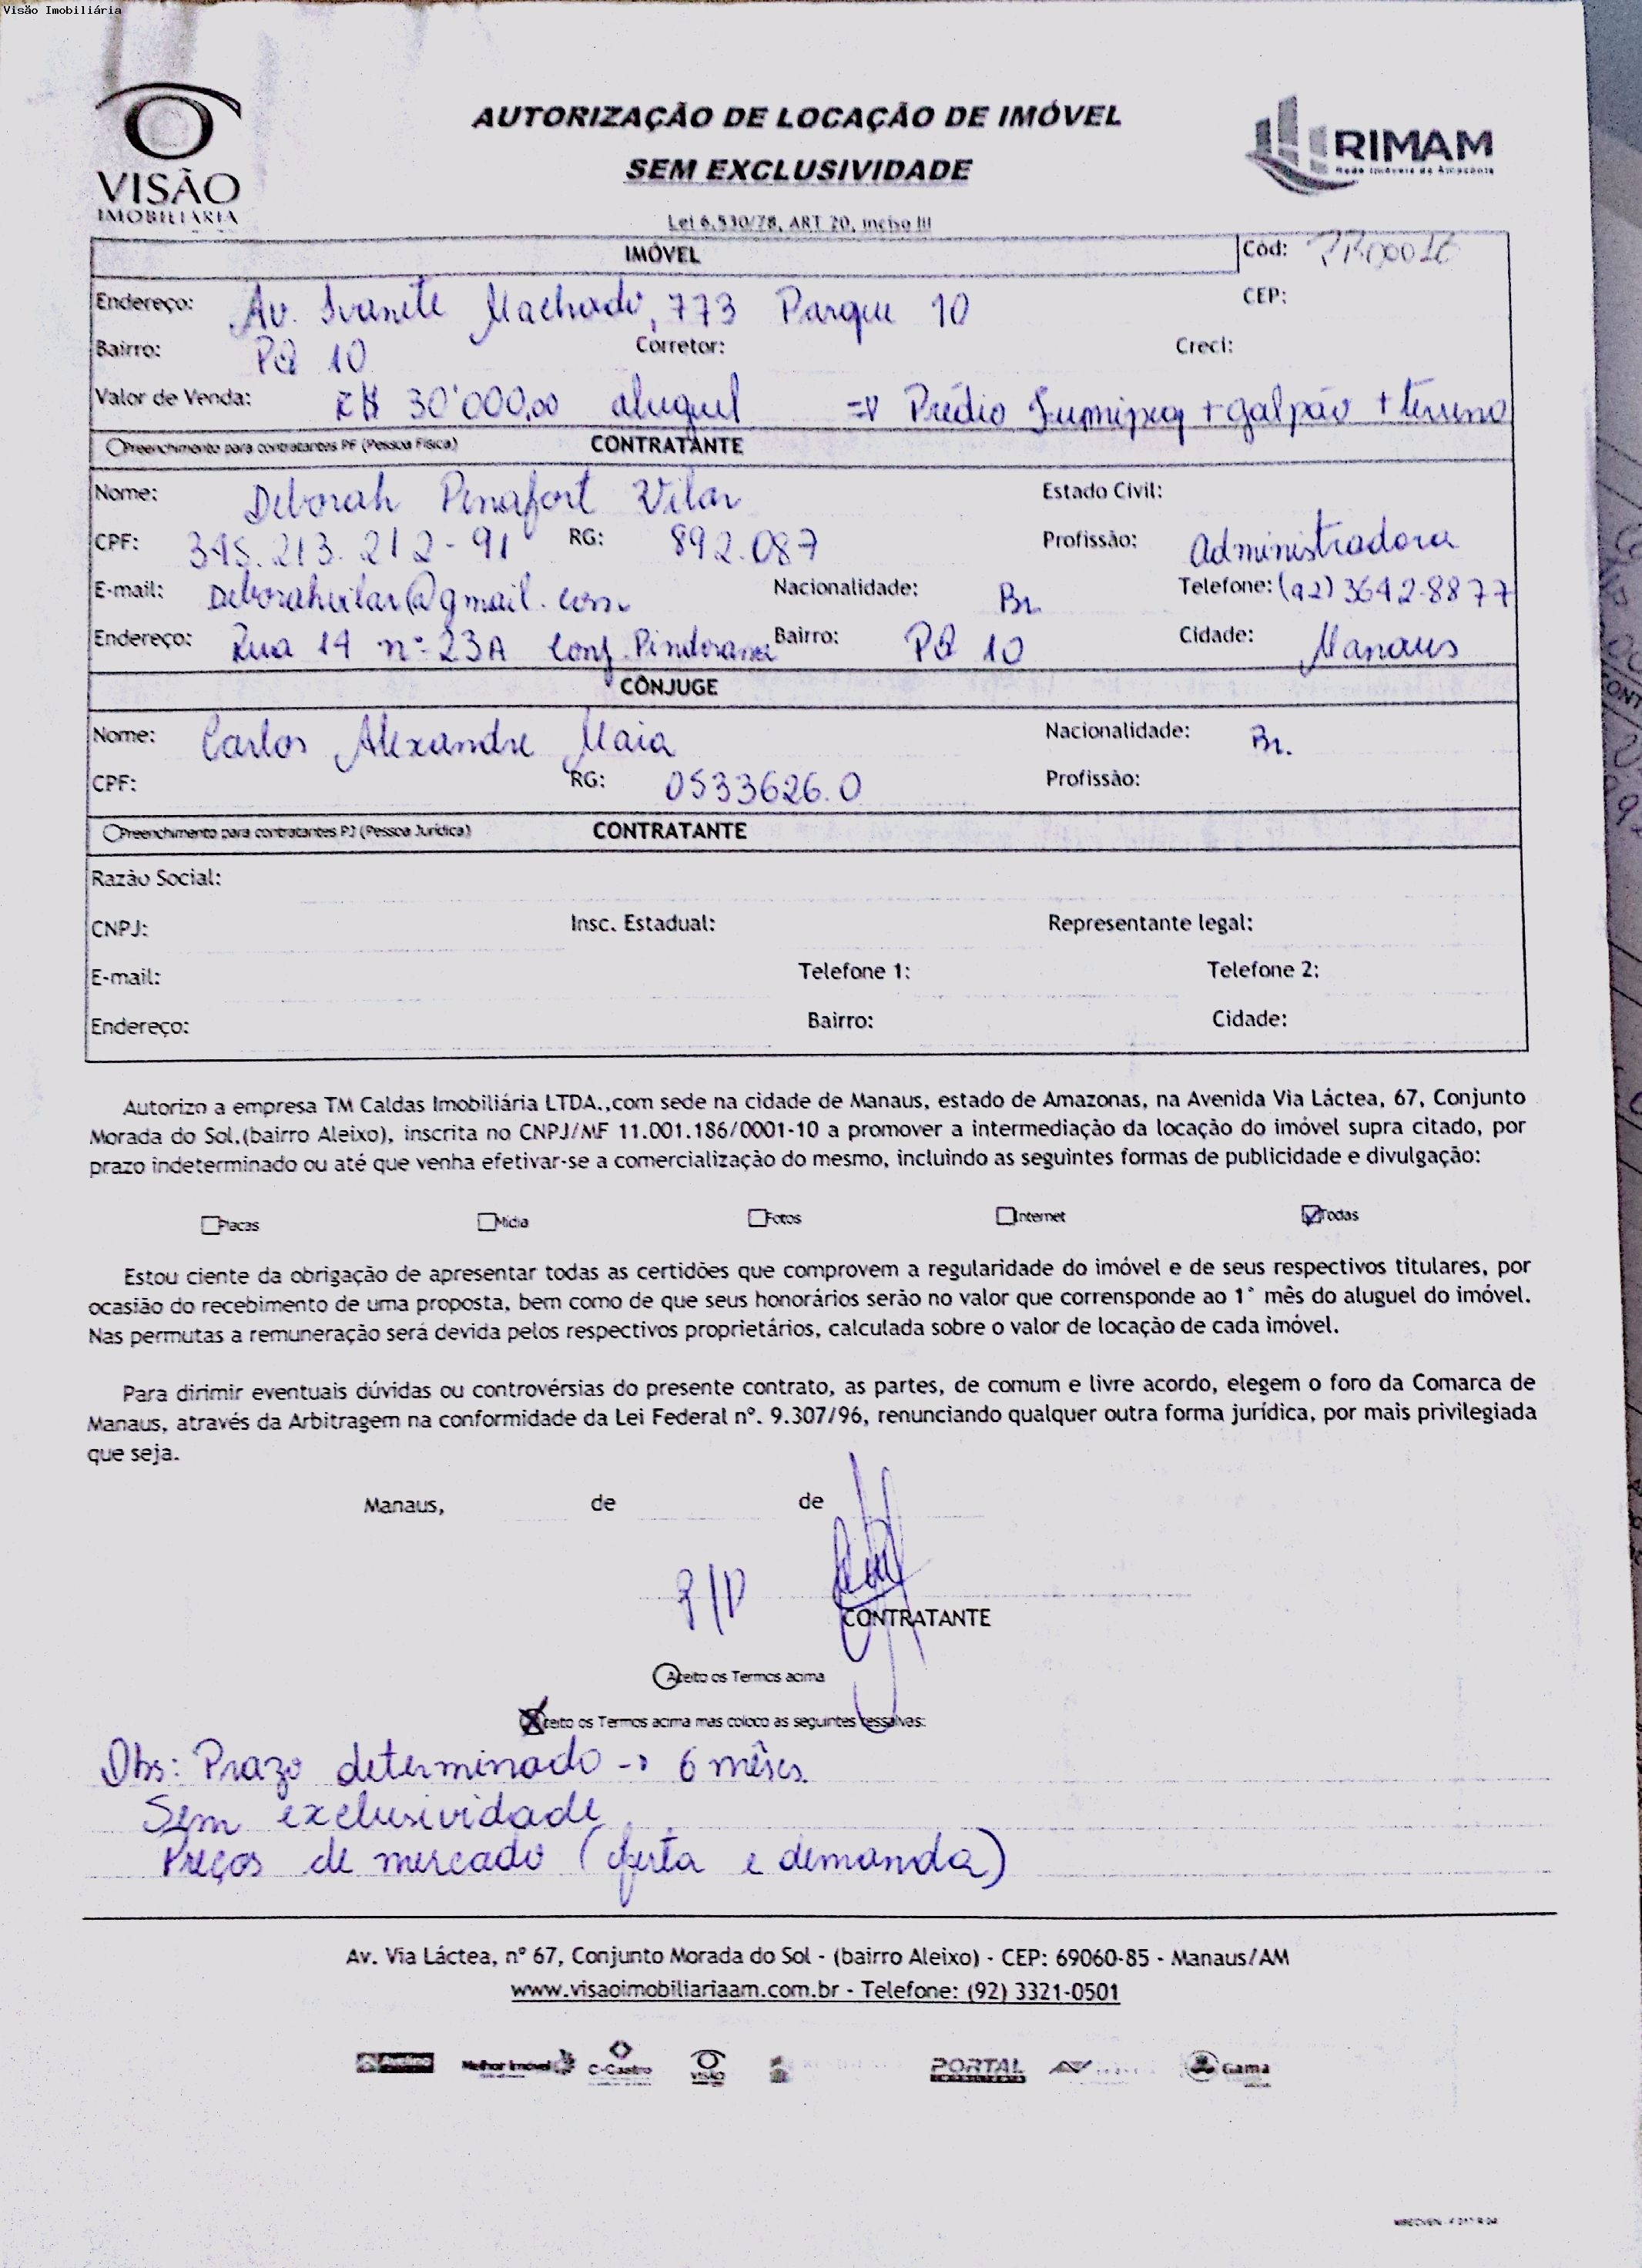 Visão Imobiliária
VISÃO
IMOBILIÁRIA
AUTORIZAÇÃO DE LOCAÇÃO DE IMÓVEL
SEM EXCLUSIVIDADE
Lei 6.530/78, ART 20, inciso III
RIMAM
Rede Imóveis da Amazônia
IMÓVEL Cód:
Endereço: Av. Ivanete Machado, 773 Parque 10 CEP:
Bairro: PQ 10 Corretor: Creci:
Valor de Venda: R$ 30'000,00 aluguel => Prédio + galpão + terreno
Preenchimento para contratantes PF (Pessoa Física) CONTRATANTE
Nome: Deborah Penafort Vilar Estado Civil:
CPF: 345.213.212-91 RG: 892.087 Profissão: Administradora
E-mail: Deborahvilar@gmail.com Nacionalidade: Br. Telefone: (92) 3642-8877
Endereço: Rua 14 nº 23A Conj. Pindorama Bairro: PQ 10 Cidade: Manaus
CÔNJUGE
Nome: Carlos Alexandre Maia Nacionalidade: Br.
CPF: RG: 0533626.0 Profissão:
Preenchimento para contratantes PJ (Pessoa Jurídica) CONTRATANTE
Razão Social:
CNPJ: Insc. Estadual: Representante legal:
E-mail: Telefone 1: Telefone 2:
Endereço: Bairro: Cidade:
Autorizo a empresa TM Caldas Imobiliária LTDA.,com sede na cidade de Manaus, estado de Amazonas, na Avenida Via Láctea, 67, Conjunto
Morada do Sol,(bairro Aleixo), inscrita no CNPJ/MF 11.001.186/0001-10 a promover a intermediação da locação do imóvel supra citado, por
prazo indeterminado ou até que venha efetivar-se a comercialização do mesmo, incluindo as seguintes formas de publicidade e divulgação:
Placas Mídia Fotos Internet Todas
Estou ciente da obrigação de apresentar todas as certidões que comprovem a regularidade do imóvel e de seus respectivos titulares, por
ocasião do recebimento de uma proposta, bem como de que seus honorários serão no valor que corrensponde ao 1° mês do aluguel do imóvel.
Nas permutas a remuneração será devida pelos respectivos proprietários, calculada sobre o valor de locação de cada imóvel.
Para dirimir eventuais dúvidas ou controvérsias do presente contrato, as partes, de comum e livre acordo, elegem o foro da Comarca de
Manaus, através da Arbitragem na conformidade da Lei Federal nº. 9.307/96, renunciando qualquer outra forma jurídica, por mais privilegiada
que seja.
Manaus, de de
P/P
CONTRATANTE
Aceito os Termos acima
Aceito os Termos acima mas coloco as seguintes ressalvas:
Obs: Prazo determinado -> 6 mêses
Sem exclusividade
Preços de mercado (oferta e demanda)
Av. Via Láctea, nº 67, Conjunto Morada do Sol - (bairro Aleixo) - CEP: 69060-85 - Manaus/AM
www.visaoimobiliariaam.com.br - Telefone: (92) 3321-0501
Melhor Imóvel C-Castro VISÃO PORTAL Gama